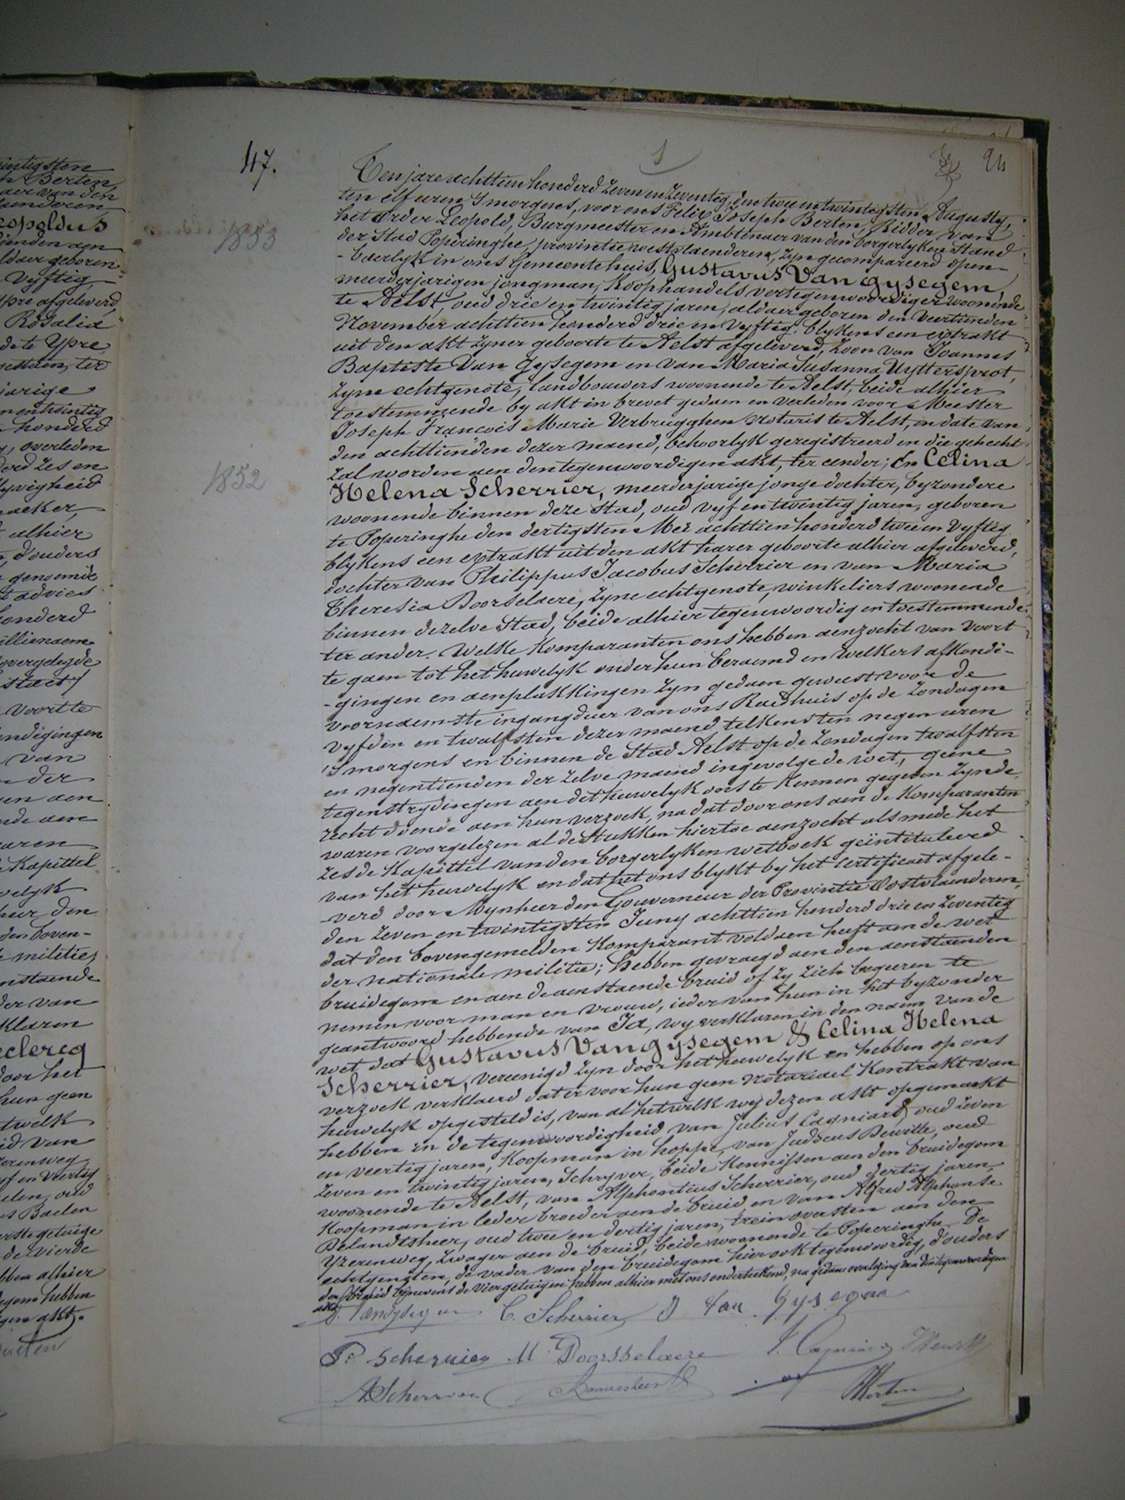 47.
1
94
1853
1852
Ten jare achttien honderd zeven en zeventig, den twee en twintigsten Augusty,
ten elf uren 's morgens, voor ons Felix Joseph Berten, Ridder van
het order Leopold, Burgmeester en Ambtenaer van den borgerlyken Stand
der Stad Poperinghe, provintie westvlaenderen, zyn gecompareerd open-
-baerlyk in ons Gemeentehuis, Gustavus Van Gysegem
meerderjarigen jongman, Koophandels vertegenwoordiger woonende
te Aelst, oud drie en twintig jaren, aldaer geboren den veertienden
November achttien honderd drie en vyftig blykens een extrakt
uit den akt zyner geboorte te Aelst afgeleverd, zoon van Joannes
Baptiste Van Gysegem en van Maria Susanna Uyttersprot,
zyne echtgenote, landbouwers woonende te Aelst, beide alhier
toestemmende by akt in brevet gedaen en verleden voor Meester
Joseph François Marie Verbrugghen notaris te Aelst, en date van
den achttienden dezer maend, behoorlyk geregistreerd en die gehecht
zal worden aen den tegenwoordigen akt, ter eender; En Celina
Helena Scherrier, meerderjarige jonge dochter, byzondere
woonende binnen deze stad, oud vyf en twintig jaren, geboren
te Poperinghe den dertigsten Mei achttien honderd twee en vyftig
blykens een extrakt uit den akt harer geboorte alhier afgeleverd,
dochter van Philippus Jacobus Scherrier en van Maria
Theresia Doorselaere, zyne echtgenote, winkeliers woonende
binnen dezelve Stad, beide alhier tegenwoordig en toestemmende
ter ander. Welke Komparanten ons hebben aenzocht van voort
te gaen tot het huwelyk onder hun beraemd en welkers afkondi-
-gingen en aenplakkingen zyn gedaen geweest voor de
voornaemste ingangdeur van ons Raedhuis op de zondagen
vyfden en twalfsten dezer maend, telkens ten negen uren
's morgens en binnen de Stad Aelst op de zondagen twalfsten
en negentienden der zelve maend ingevolge de wet, geene
tegenstrydingen aen dit huwelyk ons te kennen gegeven zynde,
recht doende aen hun verzoek, na dat door ons aen de Komparanten
waren voorgelezen al de stukken hiertoe aenzocht als mede het
zesde Kapittel van den borgerlyken wetboek geïntituleerd
van het huwelyk en dat het ons blykt by het certificaet afgele-
-verd door Mynheer den Gouverneur der Provintie Oostvlaenderen,
den zeven en twintigsten Juny achttien honderd drie en zeventig
dat den bovengemelden Komparant voldaen heeft aen de wet
der nationale militie; Hebben gevraegd aen den aenstaenden
bruidegom en aen de aenstaende bruid of zy zich begeeren te
nemen voor man en vrouw, ieder van hun in het byzonder
geantwoord hebbende van Ja, wy verklaren in den naem van de
wet, dat Gustavus Van Gysegem & Celina Helena
Scherrier, vereenigd zyn door het huwelyk en hebben op ons
verzoek verklaerd dat er voor hun geen notariael Kontrakt van
huwelyk opgesteld is, van al hetwelk wy dezen akt opgemaekt
hebben in de tegenwoordigheid van Julius Cagniard, oud zeven
en veertig jaren, Koopman in hoppe, van Judocus Dewitte, oud
zeven en twintig jaren, Schryver, beide Kennissen aen den bruidegom
woonende te Aelst, van Alphontius Scherrier, oud dertig jaren,
Koopman in leder broeder aen de bruid, en van Alfred Alphonse
Belandtsheer, oud twee en dertig jaren, trein oversten aen den
Yzerenweg, zwager aen de bruid, beide woonende te Poperinghe. De
echtgenoten, de vader van den bruidegom hier ook tegenwoordig, d'ouders
der bruid benevens de vier getuigen hebben alhier met ons onderteekend, na gedane voorlezing van den tegenwoordigen
akt.
C. Scherrier J Van Gysegem
P: Scherrier M Doorsselaere
A Scherrier
Berten